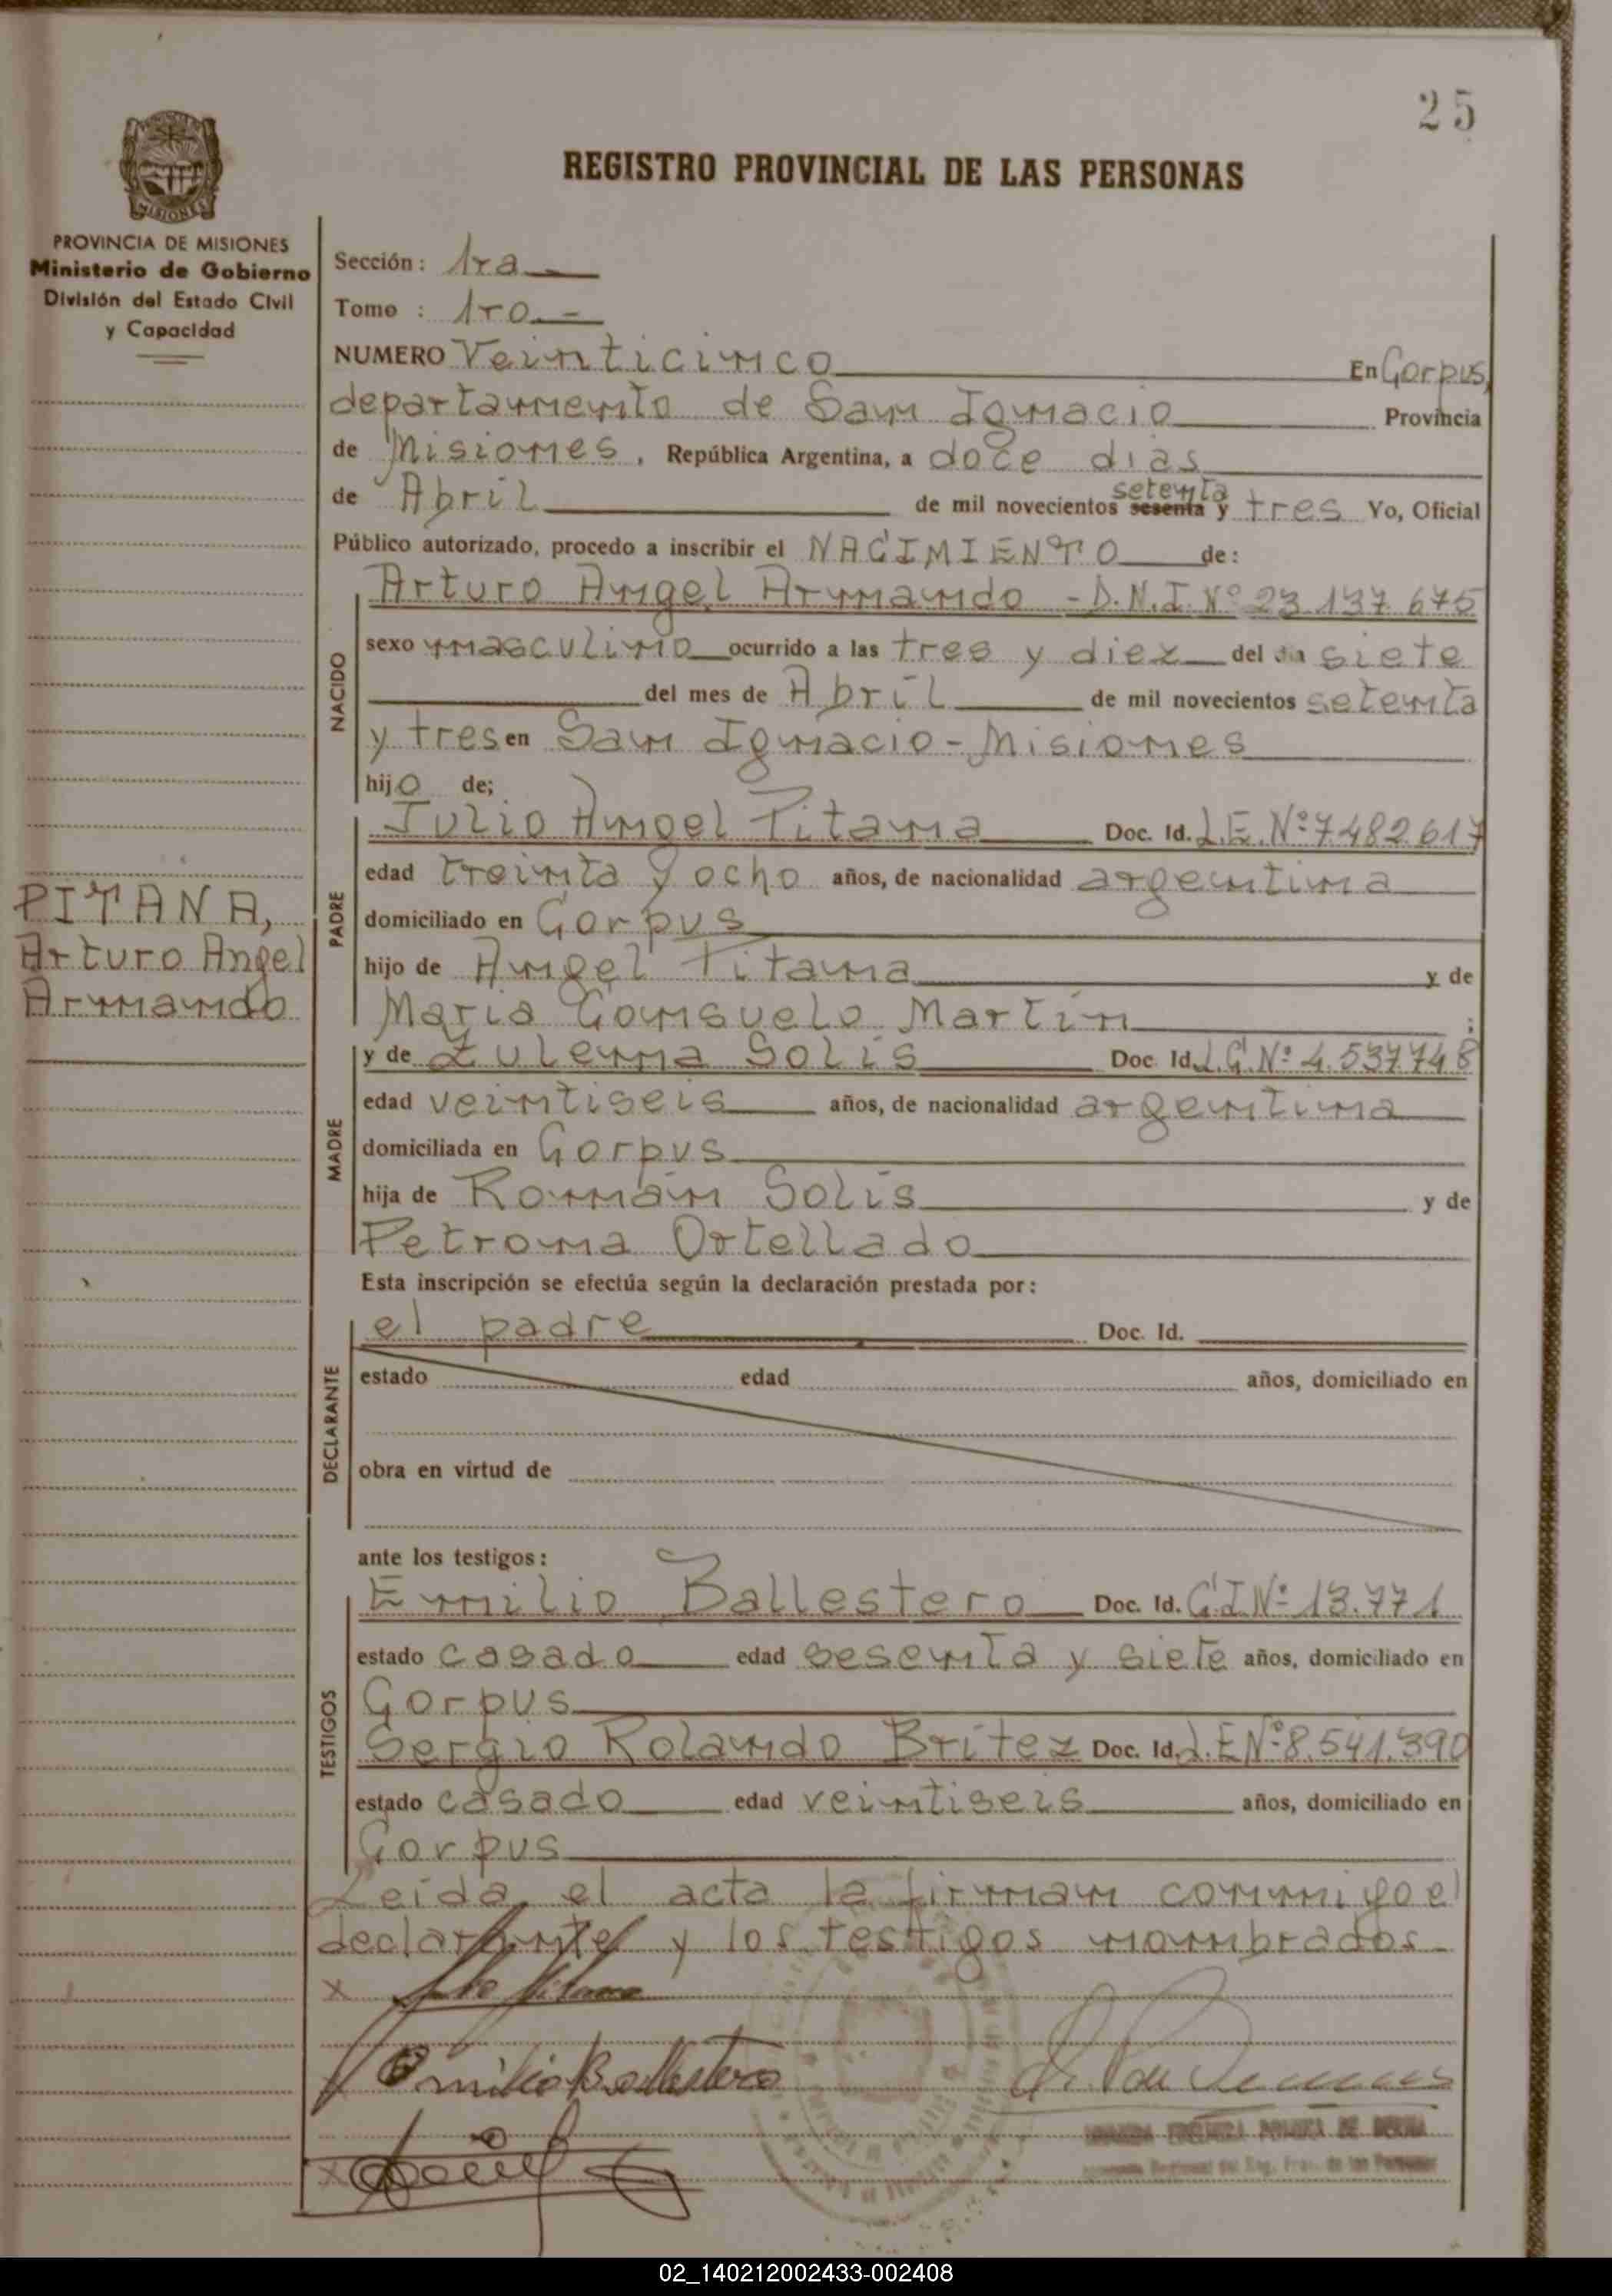 25
REGISTRO PROVINCIAL DE LAS PERSONAS
PROVINCIA DE MISIONES
Ministerio de Gobierno
División del Estado Civil
y Capacidad
Sección: 1ra
Tomo : 1ro.-
NUMERO Veinticinco En Corpus,
departamento de San Ignacio Provincia
de Misiones, República Argentina, a doce dias
de Abril de mil novecientos sesenta y setenta tres Yo, Oficial
Público autorizado, procedo a inscribir el NACIMIENTO de:
NACIDO
Arturo Angel Armando - D.N.I. Nº 23.137.675
sexo masculino ocurrido a las tres y diez del dia siete
del mes de Abril de mil novecientos setenta
y tres en San Ignacio - Misiones
hijo de;
PADRE
Julio Angel Pitana Doc. Id. L.E. Nº 7482617
edad treinta y ocho años, de nacionalidad argentina
domiciliado en Corpus
hijo de Angel Pitana y de
Maria Consuelo Martín ;
PITANA,
Arturo Angel
Armando
MADRE
y de Zulema Solis Doc. Id. L.C. Nº 4.537.748
edad veintiseis años, de nacionalidad argentina
domiciliada en Corpus
hija de Román Solis y de
Petrona Ortellado
Esta inscripción se efectúa según la declaración prestada por:
DECLARANTE
el padre Doc. Id.
estado edad años, domiciliado en
obra en virtud de
ante los testigos:
TESTIGOS
Emilio Ballestero Doc. Id. C.I. Nº 13.771
estado casado edad sesenta y siete años, domiciliado en
Corpus
Sergio Rolando Britez Doc. Id. L.E Nº 8.541.390
estado casado edad veintiseis años, domiciliado en
Corpus
Leida el acta la firman conmigo el
declarante y los testigos nombrados.
x
Emilio Ballestero
x
02_140212002433-002408